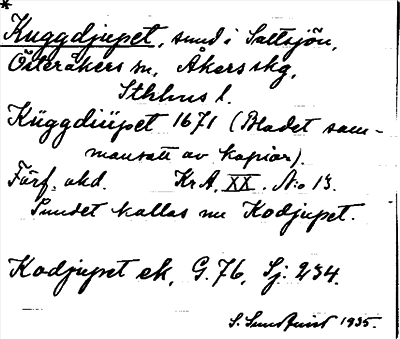 *
Kuggdjupet, sund i Saltsjön,
Österåkers sn, Åkers skg,
Sthlms l.
Küggdiüpet 1671 (Bladet sam-
mansatt av kopior).
Förf. okd. Kr A. XX. N:o 13.
Sundet kallas nu Kodjupet.
Kodjupet ek, G. 76, Sj. 234.
S. Sundquist 1935.